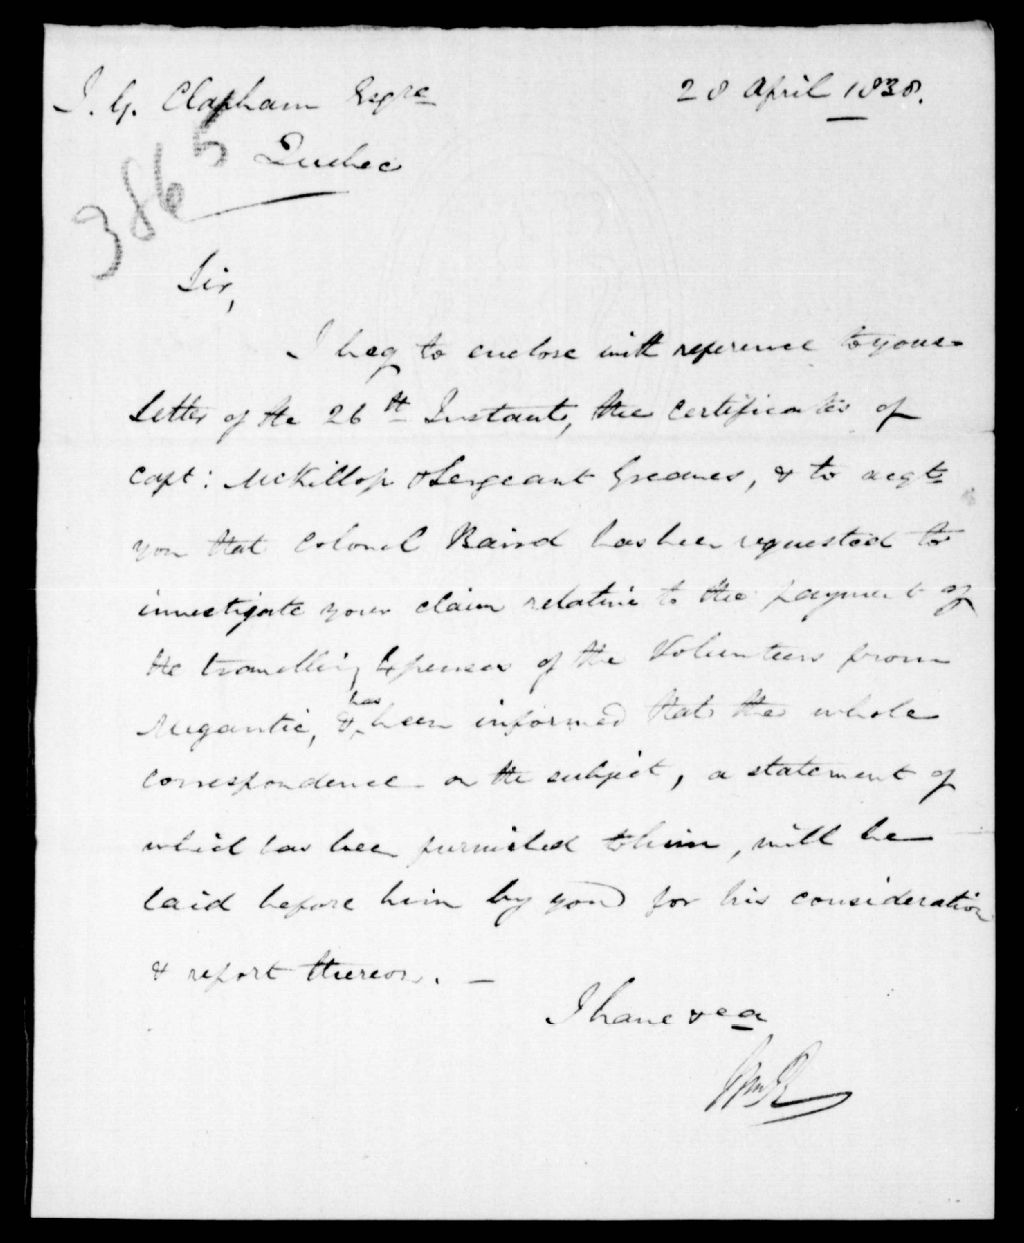 J. G. Clapham Esqre 28 April 1838.
Quebec
3865
Sir,
I beg to enclose with reference to your
Letter of the 26th Instant, the certificates of
Capt: McKillop & Sergeant Greaves, & to acqt
you that Colonel Baird has been requested to
investigate your claim relative to the payment of
the travelling Expenses of the Volunteers from
Megantic, & has been informed that the whole
correspondence on the subject, a statement of
which has been furnished to him, will be
laid before him by you for his consideration
& report thereon. —
I have &ca